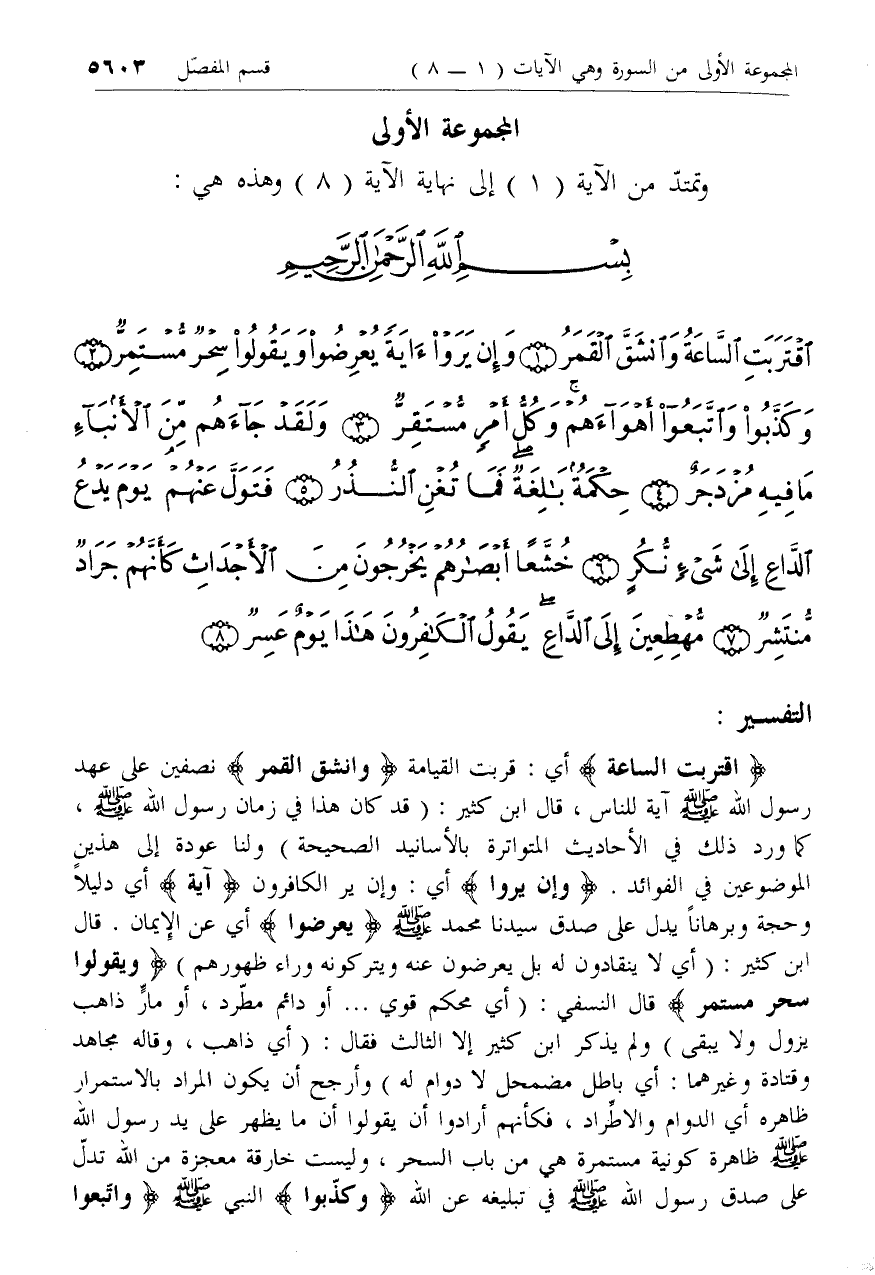 المجموعة الأولى من السورة وهي الآيات ( ١ ــ ٨ ) قسم المفصّل ٥٦٠٣
المجموعة الأولى
وتمتدّ من الآية ( ١ ) إلى نهاية الآية ( ٨ ) وهذه هي :
بِسْمِ ٱللَّهِ ٱلرَّحْمَٰنِ ٱلرَّحِيمِ
ٱقْتَرَبَتِ ٱلسَّاعَةُ وَٱنشَقَّ ٱلْقَمَرُ ۝١ وَإِن يَرَوْا۟ ءَايَةً يُعْرِضُوا۟ وَيَقُولُوا۟ سِحْرٌ مُّسْتَمِرٌّ ۝٢
وَكَذَّبُوا۟ وَٱتَّبَعُوٓا۟ أَهْوَآءَهُمْ ۚ وَكُلُّ أَمْرٍ مُّسْتَقِرٌّ ۝٣ وَلَقَدْ جَآءَهُم مِّنَ ٱلْأَنۢبَآءِ
مَا فِيهِ مُزْدَجَرٌ ۝٤ حِكْمَةٌۢ بَٰلِغَةٌ ۖ فَمَا تُغْنِ ٱلنُّذُرُ ۝٥ فَتَوَلَّ عَنْهُمْ ۘ يَوْمَ يَدْعُ
ٱلدَّاعِ إِلَىٰ شَىْءٍ نُّكُرٍ ۝٦ خُشَّعًا أَبْصَٰرُهُمْ يَخْرُجُونَ مِنَ ٱلْأَجْدَاثِ كَأَنَّهُمْ جَرَادٌ
مُّنتَشِرٌ ۝٧ مُّهْطِعِينَ إِلَى ٱلدَّاعِ ۖ يَقُولُ ٱلْكَٰفِرُونَ هَٰذَا يَوْمٌ عَسِرٌ ۝٨
التفسير :
﴿ اقتربت الساعة ﴾ أي : قربت القيامة ﴿ وانشق القمر ﴾ نصفين على عهد
رسول الله ﷺ آية للناس ، قال ابن كثير : ( قد كان هذا في زمان رسول الله ﷺ ،
كما ورد ذلك في الأحاديث المتواترة بالأسانيد الصحيحة ) ولنا عودة إلى هذين
الموضوعين في الفوائد . ﴿ وإن يروا ﴾ أي : وإن ير الكافرون ﴿ آية ﴾ أي دليلاً
وحجة وبرهاناً يدل على صدق سيدنا محمد ﷺ ﴿ يعرضوا ﴾ أي عن الإيمان . قال
ابن كثير : ( أي لا ينقادون له بل يعرضون عنه ويتركونه وراء ظهورهم ) ﴿ ويقولوا
سحر مستمر ﴾ قال النسفي : ( أي محكم قوي ... أو دائم مطّرد ، أو مارٍّ ذاهب
يزول ولا يبقى ) ولم يذكر ابن كثير إلا الثالث فقال : ( أي ذاهب ، وقاله مجاهد
وقتادة وغيرهما : أي باطل مضمحل لا دوام له ) وأرجح أن يكون المراد بالاستمرار
ظاهره أي الدوام والاطِّراد ، فكأنهم أرادوا أن يقولوا أن ما يظهر على يد رسول الله
ﷺ ظاهرة كونية مستمرة هي من باب السحر ، وليست خارقة معجزة من الله تدلّ
على صدق رسول الله ﷺ في تبليغه عن الله ﴿ وكذّبوا ﴾ النبي ﷺ ﴿ واتّبعوا